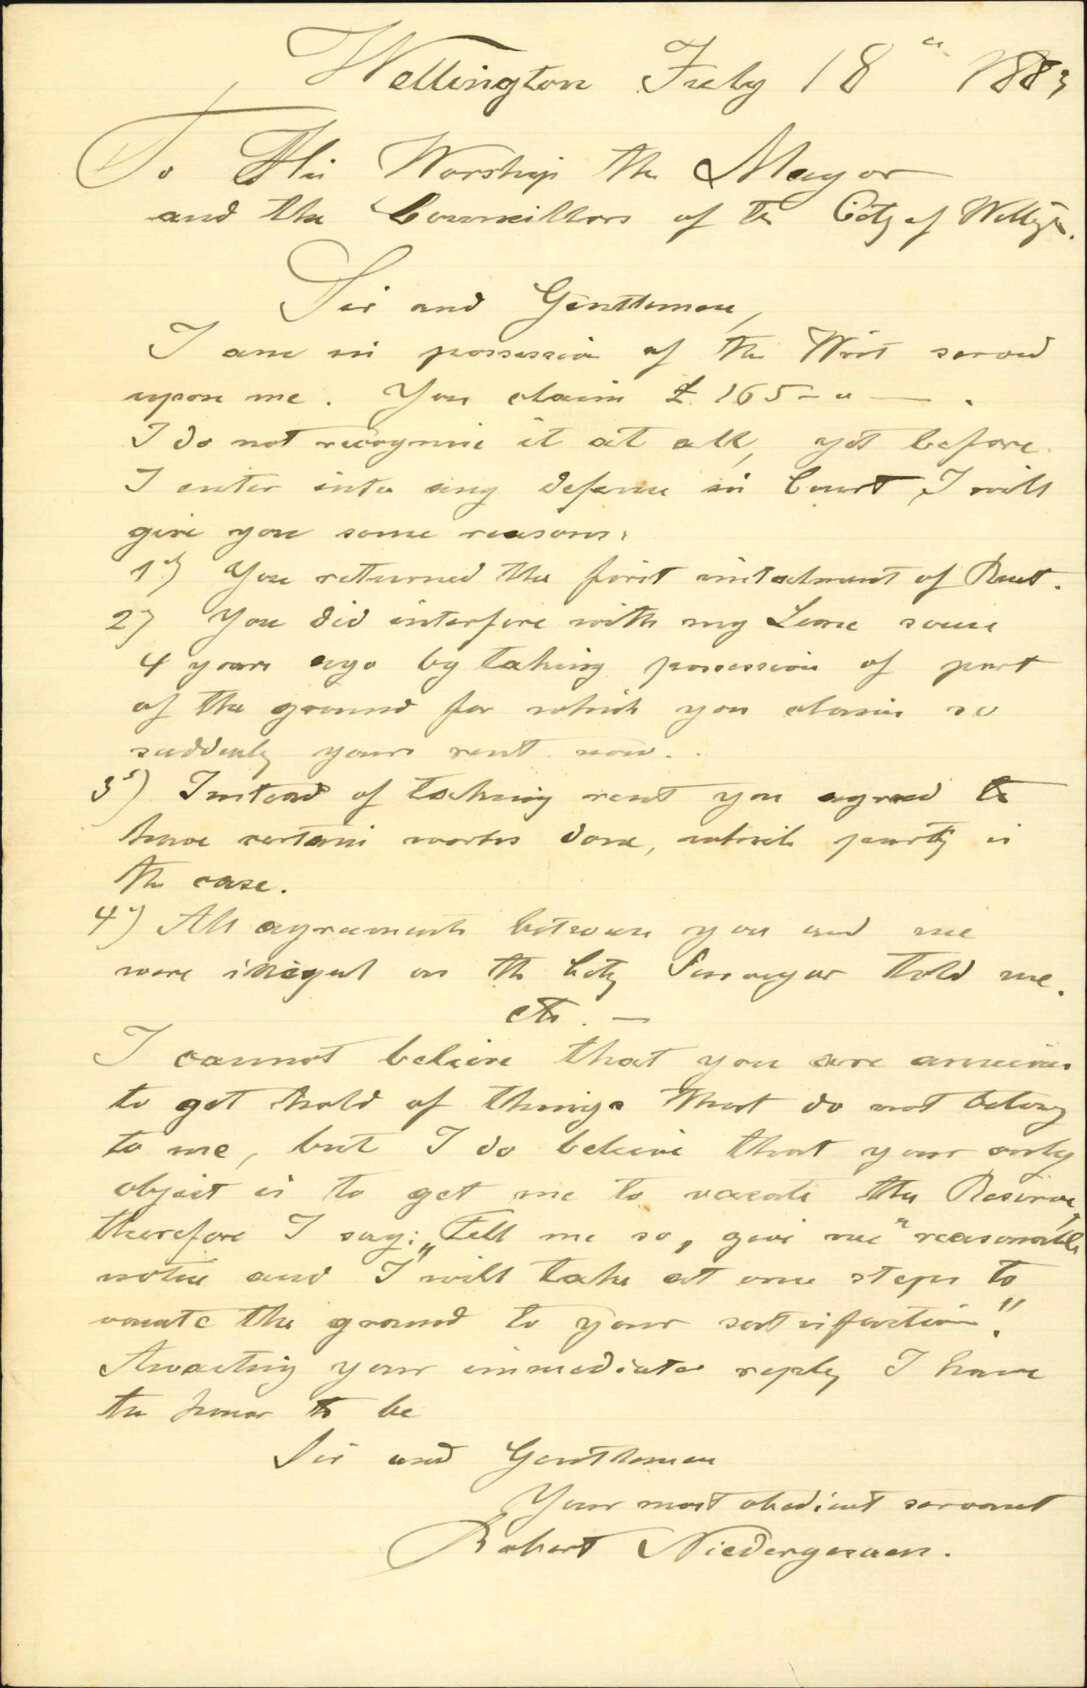 Wellington July 18" 1883
To His Worship the Mayor
and the Councillors of the City of Wellgtn.
Sir and Gentlemen,
I am in possession of the Writ served
upon me. You claim £ 165-"—.
I do not recognise it at all, yet before
I enter into any defence in Court, I will
give you some reasons:
1) You returned the first instalment of Rent.
2) You did interfere with my Lease some
4 years ago by taking possession of part
of the ground for which you claim so
suddenly yours rent now.
3) Instead of taking rent you agreed to
have certain works done, which partly is
the case.
4) All agreements between you and me
were illegal as the City Surveyor told me.
etc. —
I cannot believe that you are anxious
to get hold of things that do not belong
to me, but I do believe that your only
object is to get me to vacate the Reserve,
therefore I say: „Tell me so, give me "reasonable
notice and I "will take at once steps to
vacate the ground to your satisfaction."
Awaiting your immediate reply I have
the honor to be
Sir and Gentlemen
Your most obedient servant
Robert Niedergesaess.